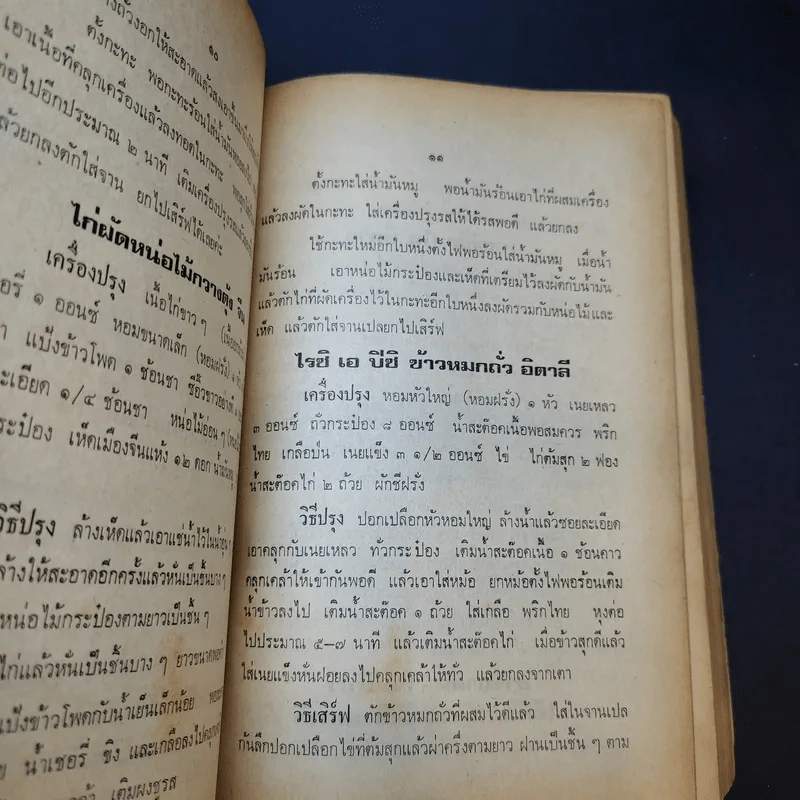 ๑๐
ให้สะอาดแล้ว
ตั้งกะทะ พอกะทะร้อนใส่น้ำมัน
เอาเนื้อที่คลุกเครื่องแล้วลงทอดในกะทะ
ต่อไปอีกประมาณ ๒ นาที เติมเครื่องปรุงรส
แล้วยกลงตักใส่จาน ยกไปเสิร์ฟได้เลยค่ะ
ไก่ผัดหน่อไม้กวางตุ้ง จีน
เครื่องปรุง เนื้อไก่ขาว ๆ
๑ ออนซ์ หอมขนาดเล็ก (หอมฝรั่ง)
แป้งข้าวโพด ๑ ช้อนชา ซีอิ๊วขาวอย่างดี ๑
ละเอียด ๑/๔ ช้อนชา หน่อไม้อ่อน ๆ
กระป๋อง เห็ดเมืองจีนแห้ง ๑๒ ดอก น้ำมันหมู
วิธีปรุง ล้างเห็ดแล้วเอาแช่น้ำไว้ในน้ำอุ่น
ล้างให้สะอาดอีกครั้งแล้วหั่นเป็นชิ้นบาง ๆ
หน่อไม้กระป๋องตามยาวเป็นชิ้น ๆ
ไก่แล้วหั่นเป็นชิ้นบาง ๆ ยาวขนาดพอ
แป้งข้าวโพดกับน้ำเย็นเล็กน้อย
น้ำเชอรี่ ขิง และเกลือลงไปคลุก
เติมผงชูรส
๑๑
ตั้งกะทะใส่น้ำมันหมู พอน้ำมันร้อนเอาไก่ที่ผสมเครื่อง
แล้วลงผัดในกะทะ ใส่เครื่องปรุงรสให้ได้รสพอดี แล้วยกลง
ใช้กะทะใหม่อีกใบหนึ่งตั้งไฟพอร้อนใส่น้ำมันหมู เมื่อน้ำ
มันร้อน เอาหน่อไม้กระป๋องและเห็ดที่เตรียมไว้ลงผัดกับน้ำมัน
แล้วตักไก่ที่ผัดเครื่องไว้ในกะทะอีกใบหนึ่งลงผัดรวมกับหน่อไม้และ
เห็ด แล้วตักใส่จานเปลยกไปเสิร์ฟ
ไรซิ เอ ปิซิ ข้าวหมกถั่ว อิตาลี
เครื่องปรุง หอมหัวใหญ่ (หอมฝรั่ง) ๑ หัว เนยเหลว
๓ ออนซ์ ถั่วกระป๋อง ๘ ออนซ์ น้ำสะต๊อคเนื้อพอสมควร พริก
ไทย เกลือป่น เนยแข็ง ๓ ๑/๒ ออนซ์ ไข่ ไก่ต้มสุก ๒ ฟอง
น้ำสะต๊อคไก่ ๒ ถ้วย ผักชีฝรั่ง
วิธีปรุง ปอกเปลือกหัวหอมใหญ่ ล้างน้ำแล้วซอยละเอียด
เอาคลุกกับเนยเหลว ทั่วกระป๋อง เติมน้ำสะต๊อคเนื้อ ๑ ช้อนคาว
คลุกเคล้าให้เข้ากันพอดี แล้วเอาใส่หม้อ ยกหม้อตั้งไฟพอร้อนเติม
น้ำข้าวลงไป เติมน้ำสะต๊อค ๑ ถ้วย ใส่เกลือ พริกไทย หุงต่อ
ไปประมาณ ๕–๗ นาที แล้วเติมน้ำสะต๊อคไก่ เมื่อข้าวสุกดีแล้ว
ใส่เนยแข็งหั่นฝอยลงไปคลุกเคล้าให้ทั่ว แล้วยกลงจากเตา
วิธีเสิร์ฟ ตักข้าวหมกถั่วที่ผสมไว้ดีแล้ว ใส่ในจานเปล
กันลึกปอกเปลือกไข่ที่ต้มสุกแล้วผ่าครึ่งตามยาว ฝานเป็นชิ้น ๆ ตาม